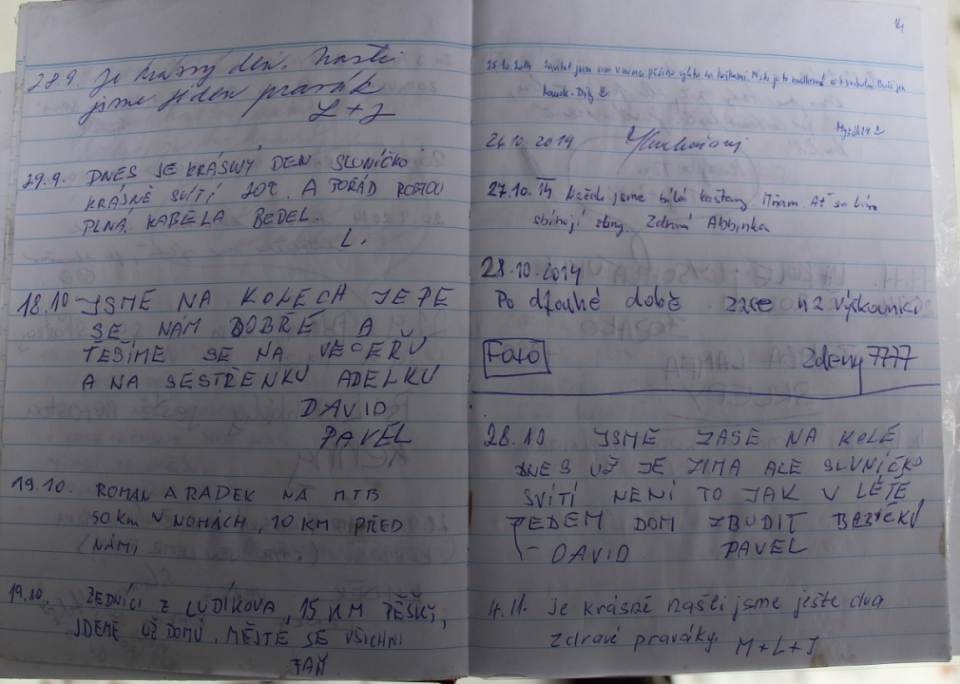 28.9. Je krásný den. Našli
jsme jeden pravák
L + J
29.9. DNES JE KRÁSNÝ DEN SLUNÍČKO
KRÁSNĚ SVÍTÍ 20°C A POŘÁD ROSTOU
PLNÁ KABELA BEDEL.
L.
18.10 JSME NA KOLECH JEDE
SE NÁM DOBŘE A
TĚŠÍME SE NA VEČEŘU
A NA SESTŘENKU ADELKU
DAVID
PAVEL
19.10. ROMAN A RADEK NA MTB
50 km V NOHÁCH, 10 KM PŘED
NÁMI
19.10. ZEDNÍCI Z LUDÍKOVA, 15 KM PĚŠKY,
JDEME UŽ DOMŮ, MĚJTE SE VŠICHNI
JAN
14
25.10.2014
26.10.2014
27.10.14 jsme kaštany Mňam. Ať se
Zdraví Abbinka
28.10.2014
Po dlouhé době zase na výškovníku
FOTO
Zdeny 7777
28.10 JSME ZASE NA KOLE
DNES UŽ JE ZIMA ALE SLUNÍČKO
SVÍTÍ NENÍ TO JAK V LÉTĚ
JEDEM DOM ZBUDIT
- DAVID PAVEL
4.11. je krásně našli jsme ješte dva
zdravé praváky. M+L+J